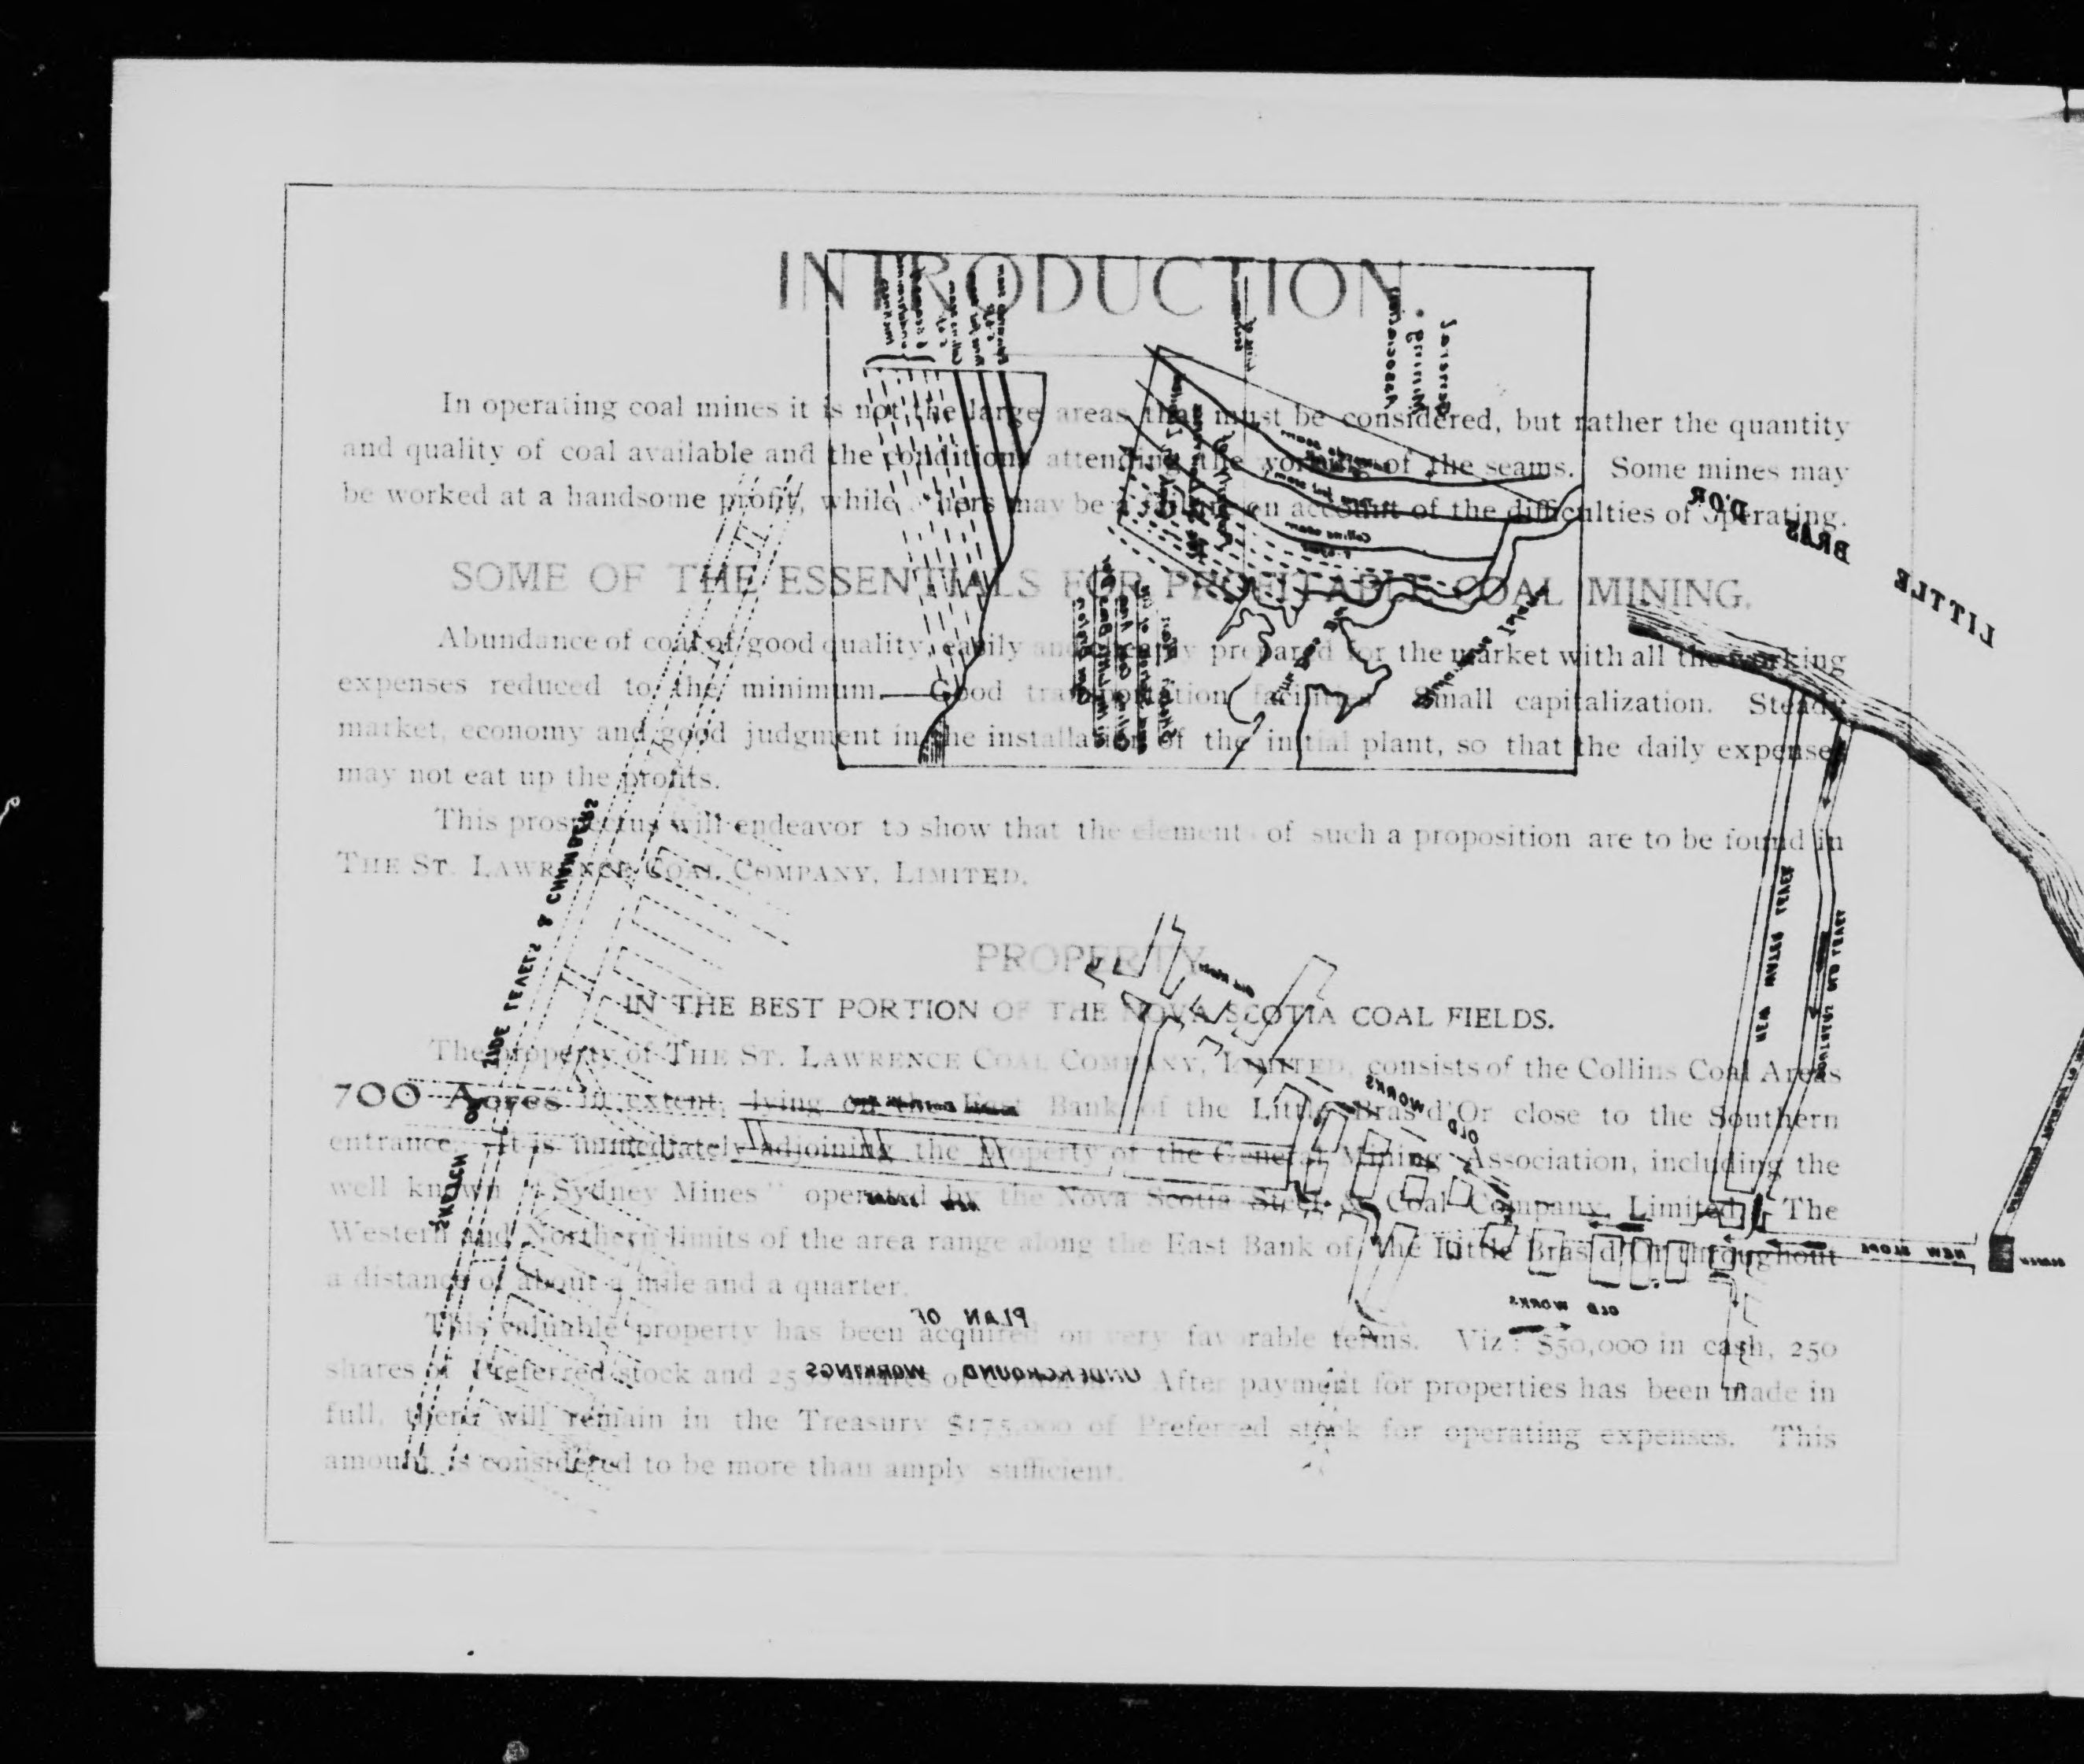 INTRODUCTION.
In operating coal mines it is not the large areas that must be considered, but rather the quantity
and quality of coal available and the conditions attending the working of the seams. Some mines may
be worked at a handsome profit, while others may be a failure on account of the difficulties of operating.
SOME OF THE ESSENTIALS FOR PROFITABLE COAL MINING.
Abundance of coal of good quality, easily and prepared for the market with all the working
expenses reduced to the minimum. Good transportation facilities. Small capitalization. Steady
market, economy and good judgment in the installation of the initial plant, so that the daily expenses
may not eat up the profits.
This prospectus will endeavor to show that the elements of such a proposition are to be found in
THE ST. LAWRENCE COAL COMPANY, LIMITED.
PROPERTY
IN THE BEST PORTION OF THE NOVA SCOTIA COAL FIELDS.
The property of THE ST. LAWRENCE COAL COMPANY, LIMITED, consists of the Collins Coal Areas
700 Acres in extent, lying on the East Bank of the Little Bras d'Or close to the Southern
entrance. It is immediately adjoining the property of the General Mining Association, including the
well known "Sydney Mines" operated by the Nova Scotia Steel & Coal Company, Limited. The
Western and Northern limits of the area range along the East Bank of the Little Bras d'Or throughout
a distance of about a mile and a quarter.
This valuable property has been acquired on very favorable terms. Viz: $50,000 in cash, 250
shares of Preferred stock and shares of After payment for properties has been made in
full, there will remain in the Treasury $175,000 of Preferred stock for operating expenses. This
amount is considered to be more than amply sufficient.
LITTLE BRAS D'OR
General
Mining
Association
SKETCH OF SIDE LEVELS & CHAMBERS
NEW WATER LEVEL
OLD WORKS
NEW SLOPE
OLD WORKS
PLAN OF
UNDERGROUND WORKINGS